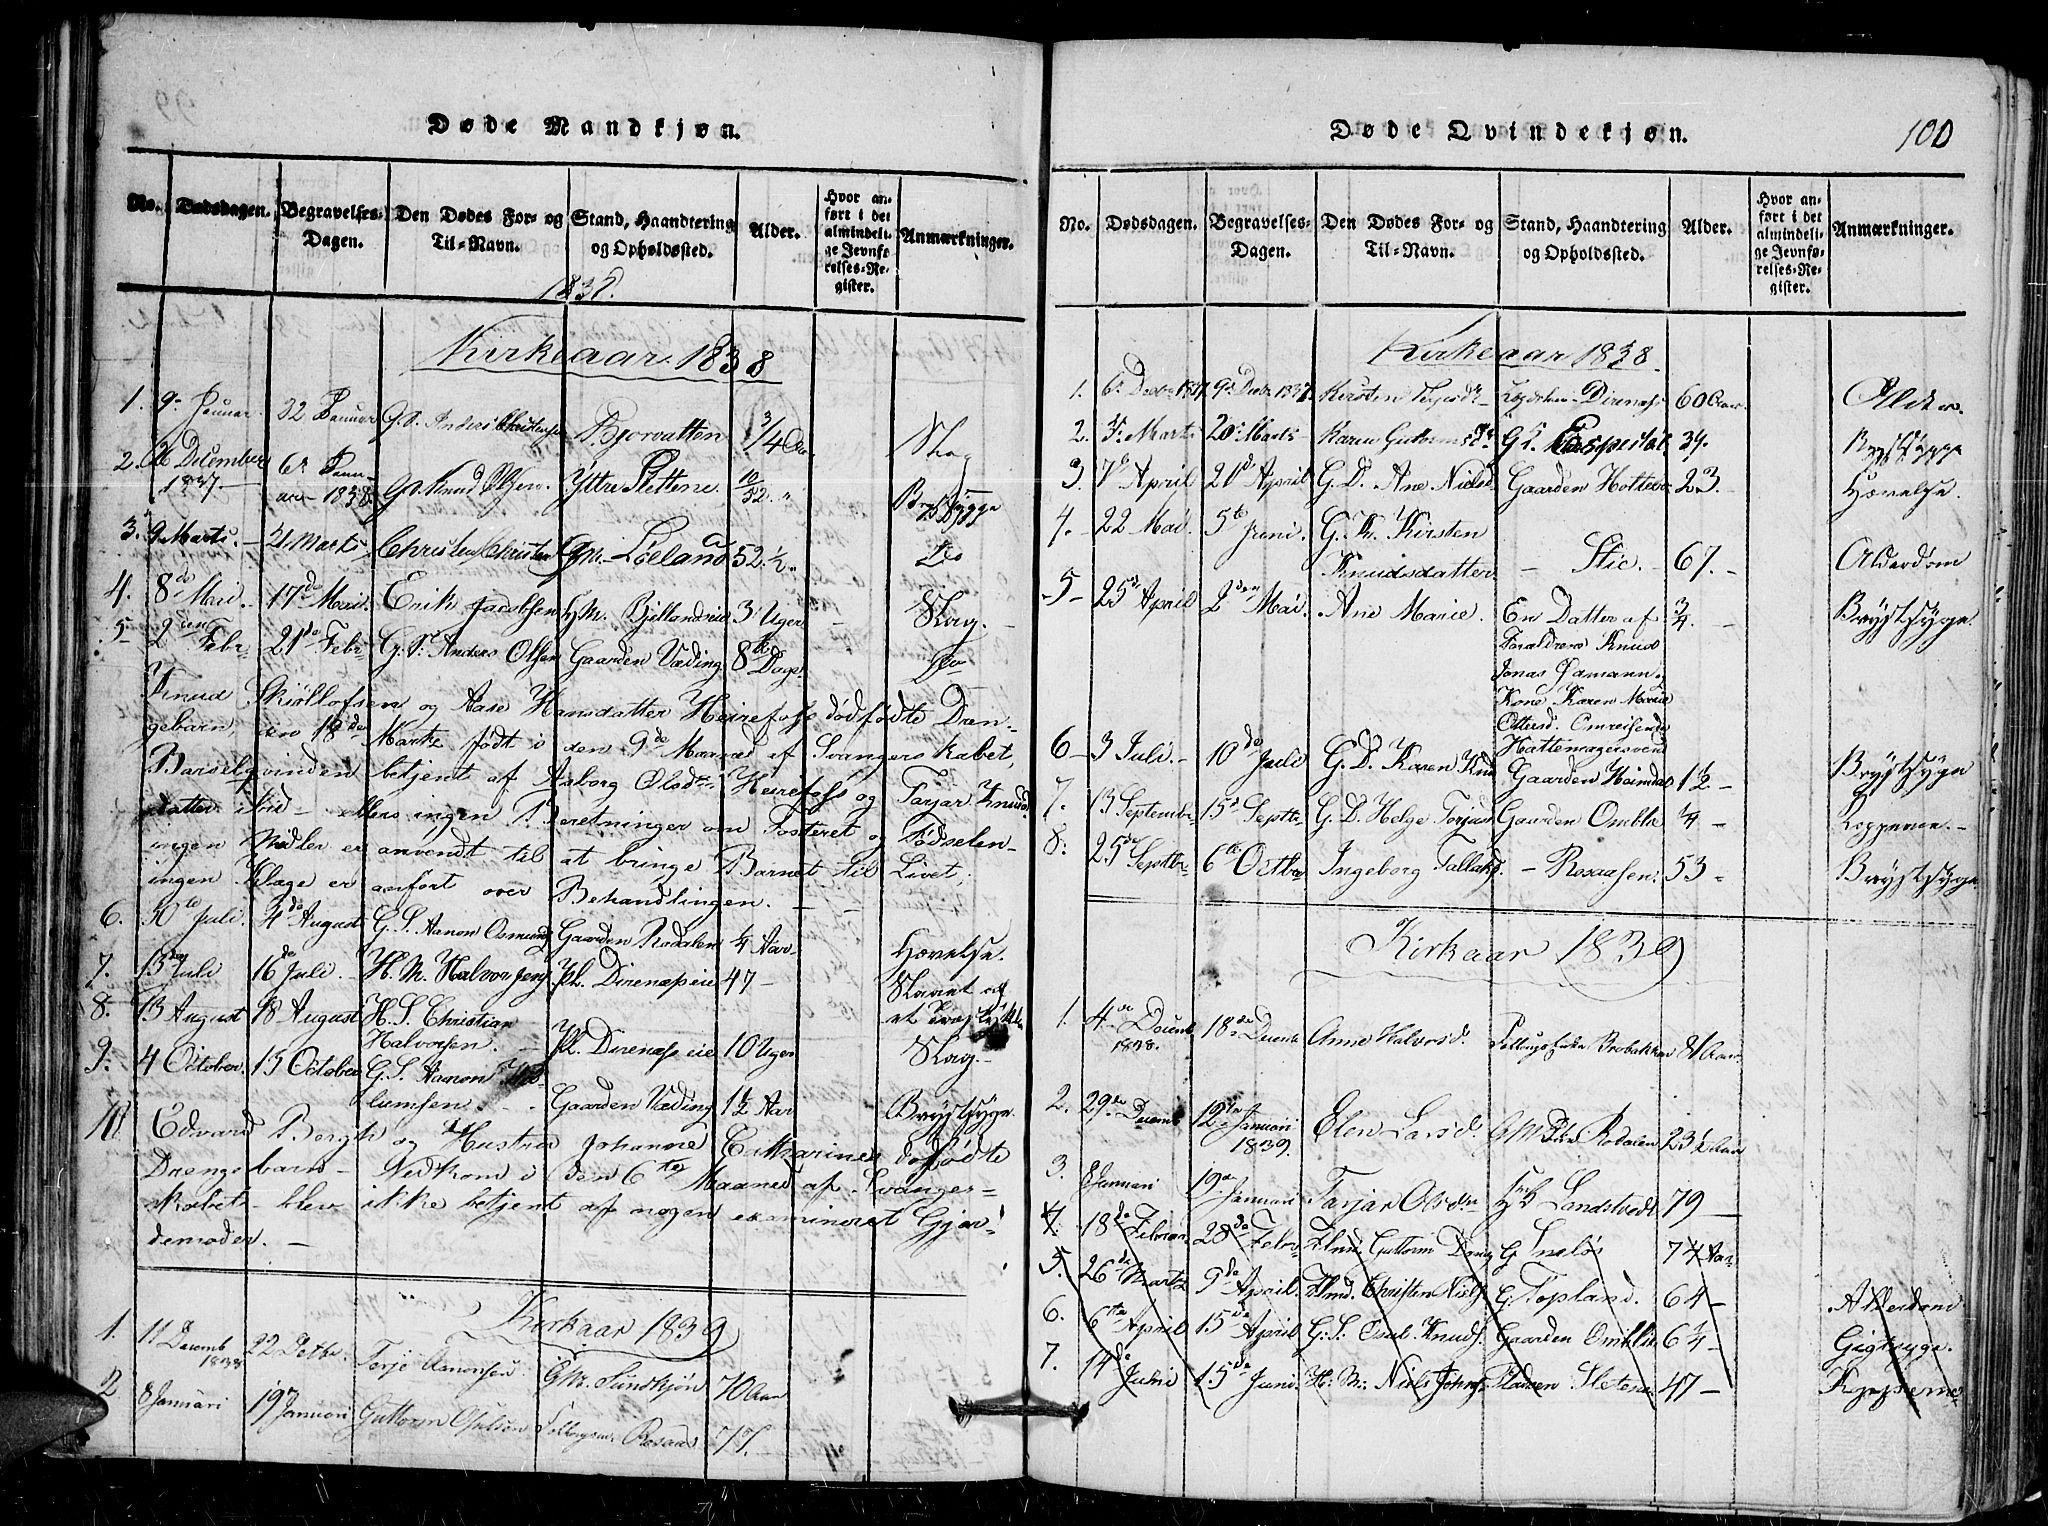 Døde Mandkjøn.
No. Dødsdagen. Begravelses-Dagen. Den Dødes For- og Til-Navn. Stand, Haandtering og Opholdssted. Alder. Hvor anført i det almindelige Jevnførelses-Register. Anmærkninger.
1838.
Kirkeaar 1838
1. 9 Januar. 22 Januar G. S. Anders Christensen Bjorvatten 3/4
2. 26 December 1837. 6 Januar 1838 Knud Ytre Slettene. 10/52 Brystsyge
3. 9 Marts. 21 Marts Christen Christen Gm. Löeland 52 1/2 Do
4. 8de Mai. 17de Mai. Erik Jacobsen H.M. Bjellandseie 3 Uger Slag.
5 2den Febr. 21de Febr. G. S. Anders Olsen Gaarden Væding 8te Dage Do
Knud Skiöllofsen og Aase Hansdatter Heirefoss dödfödte Dren-
gebarn, den 18de Martz födt i den 9de Maaned af Svangerskabet,
Barselqvinden betjent af Aasborg Olsdr. Heirefoss og Tarjer Knuds
datter ibid – ellers ingen Beretninger om Fosteret og Födselen –
ingen Midler er anvendt til at bringe Barnet til Livet;
ingen Klage er anfört over Behandlingen.
6. 30te Juli. 4de August G. S. Aanon Osmund Gaarden Rodalen 1/4 Aar Hævelse.
7. 13 Juli 16de Juli. H. M. Halvor Jens Pl. Direnæseie 47 –
8. 13 August 18 August H. S. Christian Halvorsen. Pl. Direnæs eie 10 Uger Slag.
9. 4 October. 15 October G. S. Aanon Gaarden Væding 1 1/2 Aar Brystsyge
10 Edvard Bergh og Hustru Johanne Cathrines dødfödte
Drengebarn – Nedkom i den 6te Maaned af Svanger-
skabet – blev ikke betjent af nogen examineret Gjor-
demoder. –
Kirkaar 1839
1. 11 Decemb 1838 22 Detbr. Terje Aanonsen GM. Sundkjön 70 Aar
2 8 Januari 19 Januari Guttorm Rosaas 77.
Døde Qvindekjøn.
100
No. Dødsdagen. Begravelses-Dagen. Den Dødes For- og Til-Navn. Stand, Haandtering og Opholdssted. Alder. Hvor anført i det almindelige Jevnførelses-Register. Anmærkninger.
Kirkeaar 1838.
1. 6 Decbr 1837 9 Decbr 1837. Kirsten Direnæs 60 Aar. Alder.
2. Marts 20 Marts Karen Guttormsdr 39. Brystsyge
3. 7de April 21de April G. D. Ane Nielsd Gaarden Holter 23. Hævelse.
4. 22 Mai 5te Juni. G. K. Kirsten Knudsdatter – Stie. – 67. – Alderdom
5 – 25de April 2den Mai Ane Marie. En Datter af Foraldrene Knud Jonas Kone Karen Marie Ottersd. Omreisende Hattemagersvend 3/4. – Brystsyge.
6 – 3 Juli. – 10de Juli G. D. Karen Knud Gaarden Heimdal 1 1/2 – Brystsyge
7. 13 Septembr 15de Septbr G. D. Helge Torjus Gaarden Omblie 1/4 – Kopperne. –
8. 25de Septbr 6te Octbr Ingeborg Tallaksd. – Rosaasen. 53 – Brystsyge
Kirkaar 1839
1. 4de Decemb 1838. 18de Decemb Anne Halvorsd. Brobakken Aar
2. 29de Decemb 12te Januari 1839. Elen Larsd. Rodalen 23 1/2 Aar
3. 8 Januari 19de Januari Tarjer Olsdtr Landstvedt 79 –
4. 18de Februar 28de Febr Guttorm G. 74 Aar
5. 26de Martz 9de April Christen Niels G. Topland. 64 – Alderdom
6. 6te April 15de April G. S. Omul Knuds. Gaarden Omblie 6 1/4 – Gigtsyge.
7. 14de Juni 15de Juni. H. M. Niels Johns Pladsen Sletene 47 –